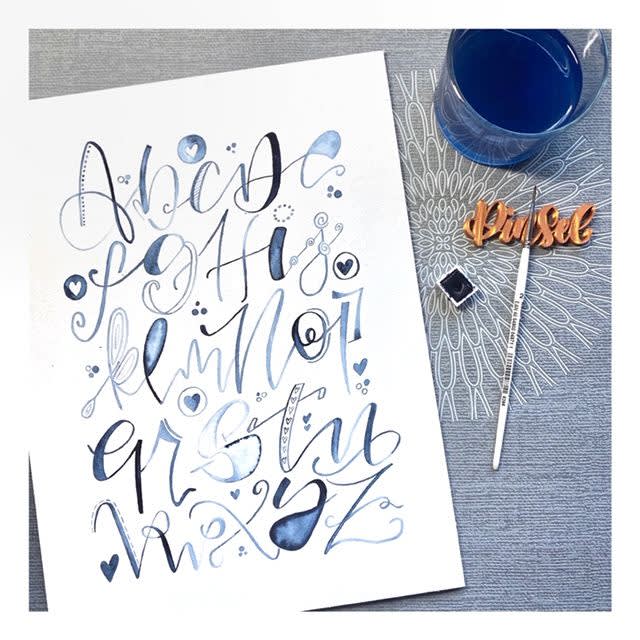 A b c D e
f g H i j
k l m N O P
q r S t u
v w x y Z
Pinsel